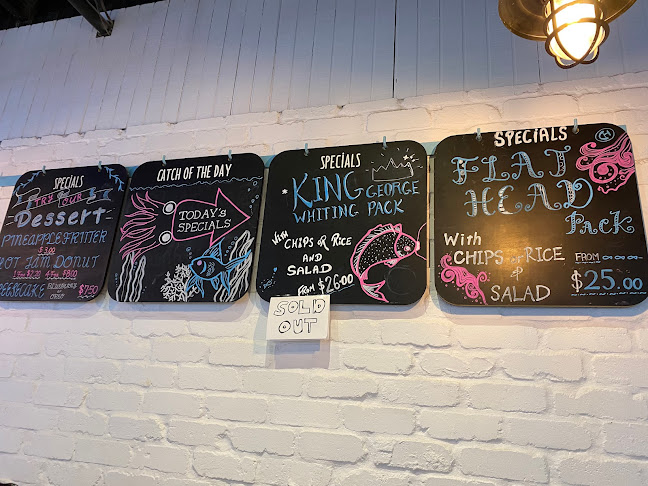 SPECIALS
TRY OUR
Dessert
PINEAPPLE FRITTER
$3.00
HOT JAM DONUT
CATCH OF THE DAY
TODAY'S
SPECIALS
SPECIALS
KING GEORGE
WHITING PACK
WITH CHIPS OR RICE
AND
SALAD
FROM $26.00
SOLD
OUT
SPECIALS
FLAT
HEAD
PACK
With
CHIPS OR RICE
&
SALAD
FROM
$25.00